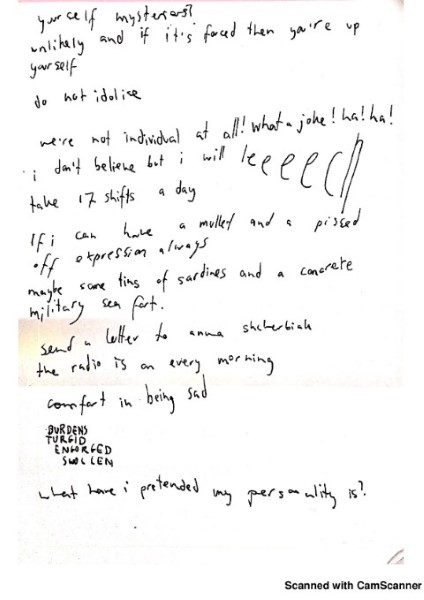 yourself mysterious?
unlikely and if it's faced then you're up
yourself
do not idolise
we're not individual at all! what a joke! ha! ha!
i don't believe but i will
take 17 shifts a day
If i can have a mullet and a pissed
off expression always
maybe some tins of sardines and a concrete
military sea fort.
send a letter to anna shcherbiak
the radio is on every morning
comfort in being sad
BURDENS
TURGID
ENGORGED
SWOLLEN
what have i pretended my personality is?
Scanned with CamScanner